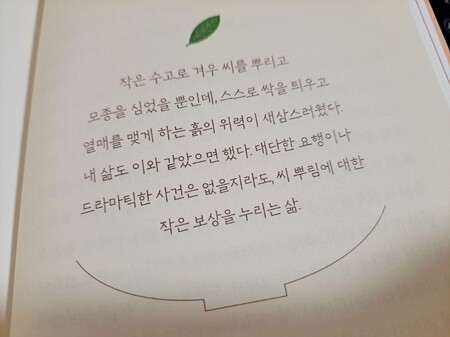 작은 수고로 겨우 씨를 뿌리고
모종을 심었을 뿐인데, 스스로 싹을 틔우고
열매를 맺게 하는 흙의 위력이 새삼스러웠다.
내 삶도 이와 같았으면 했다. 대단한 요행이나
드라마틱한 사건은 없을지라도, 씨 뿌림에 대한
작은 보상을 누리는 삶.